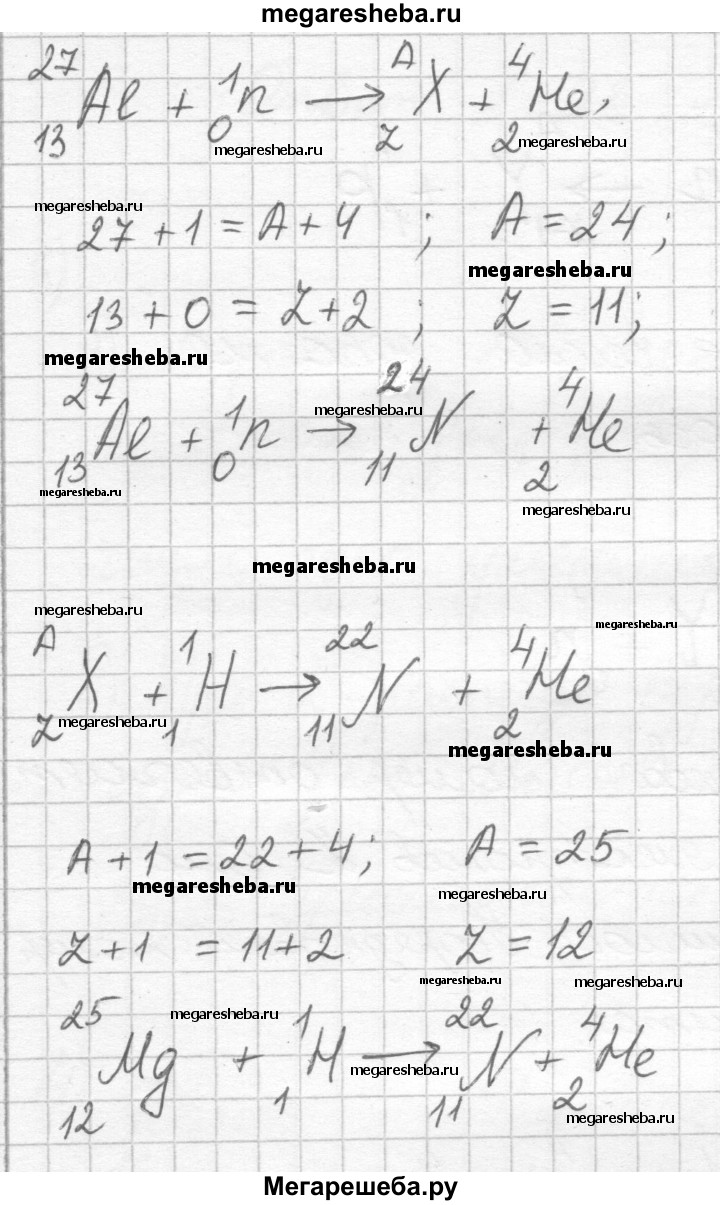 megaresheba.ru
²⁷₁₃Al + ¹₀n → ᴬ_Z X + ⁴₂He,
megaresheba.ru megaresheba.ru
megaresheba.ru
27 + 1 = A + 4 ; A = 24 ;
megaresheba.ru
13 + 0 = Z + 2 ; Z = 11 ;
megaresheba.ru
²⁷₁₃Al + ¹₀n → ²⁴₁₁N + ⁴₂He
megaresheba.ru
megaresheba.ru
megaresheba.ru
megaresheba.ru
megaresheba.ru
megaresheba.ru
ᴬ_Z X + ¹₁H → ²²₁₁N + ⁴₂He
megaresheba.ru
megaresheba.ru
A + 1 = 22 + 4 ; A = 25
megaresheba.ru
megaresheba.ru
Z + 1 = 11 + 2 Z = 12
megaresheba.ru megaresheba.ru
megaresheba.ru
²⁵₁₂Mg + ¹₁H → ²²₁₁N + ⁴₂He
megaresheba.ru
megaresheba.ru
Мегарешеба.ру